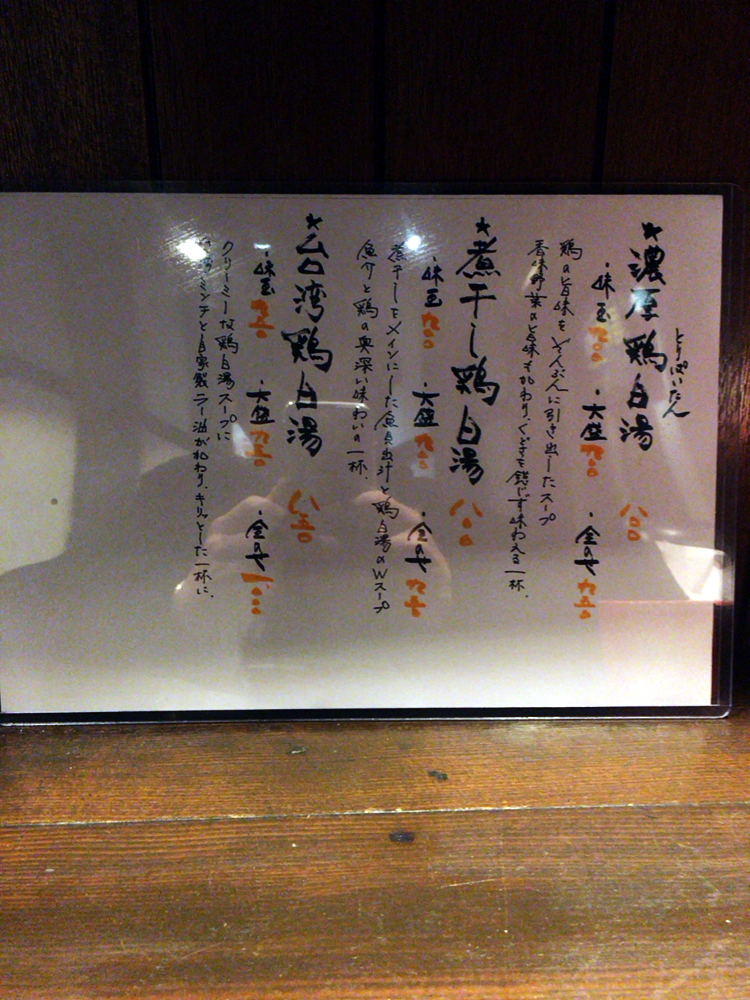 とりぱいたん
★濃厚鶏白湯 八〇〇
・味玉 九〇〇 ・大盛 九〇〇 ・全のせ 九五〇
鶏の旨味をぞんぶんに引き出したスープ
香味野菜の旨味も加わり、くどさを感じず味わえる一杯。
★煮干し鶏白湯 八〇〇
・味玉 九〇〇 ・大盛 九〇〇 ・全のせ 九五〇
煮干しをメインにした魚貝出汁と鶏白湯のWスープ
魚介と鶏の奥深い味わいの一杯。
★台湾鶏白湯 八五〇
・味玉 九五〇 ・大盛 九五〇 ・全のせ
クリーミーな鶏白湯スープに
ミンチと自家製ラー油が加わり、キリッとした一杯に。